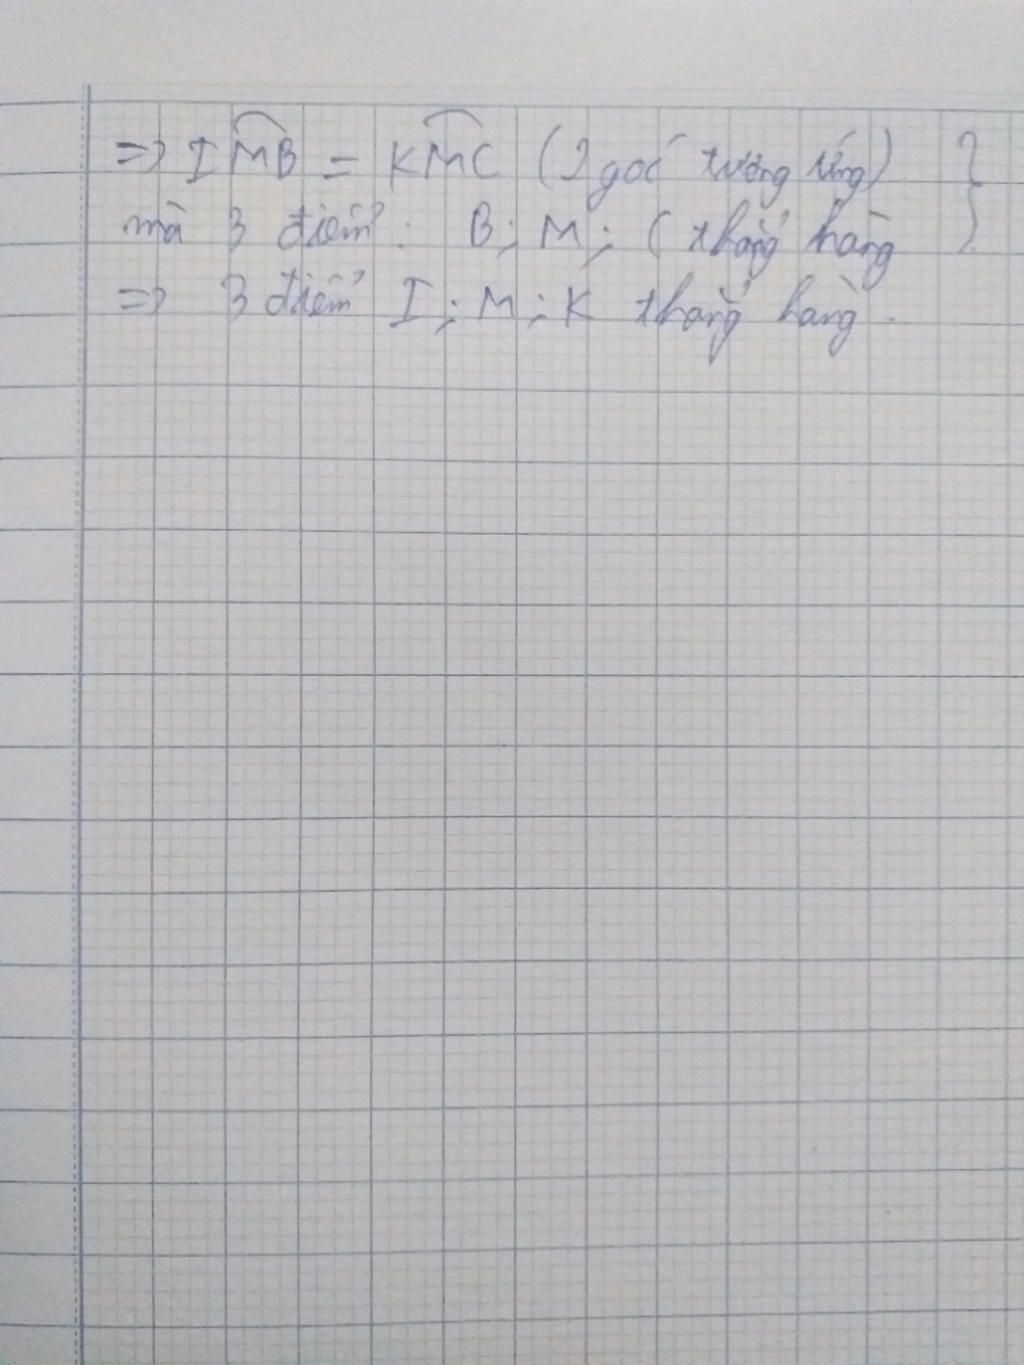 => I M̂ B = K M̂ C (2 góc tương ứng) }
mà 3 điểm : B ; M ; C thẳng hàng }
=> 3 điểm I ; M ; K thẳng hàng .